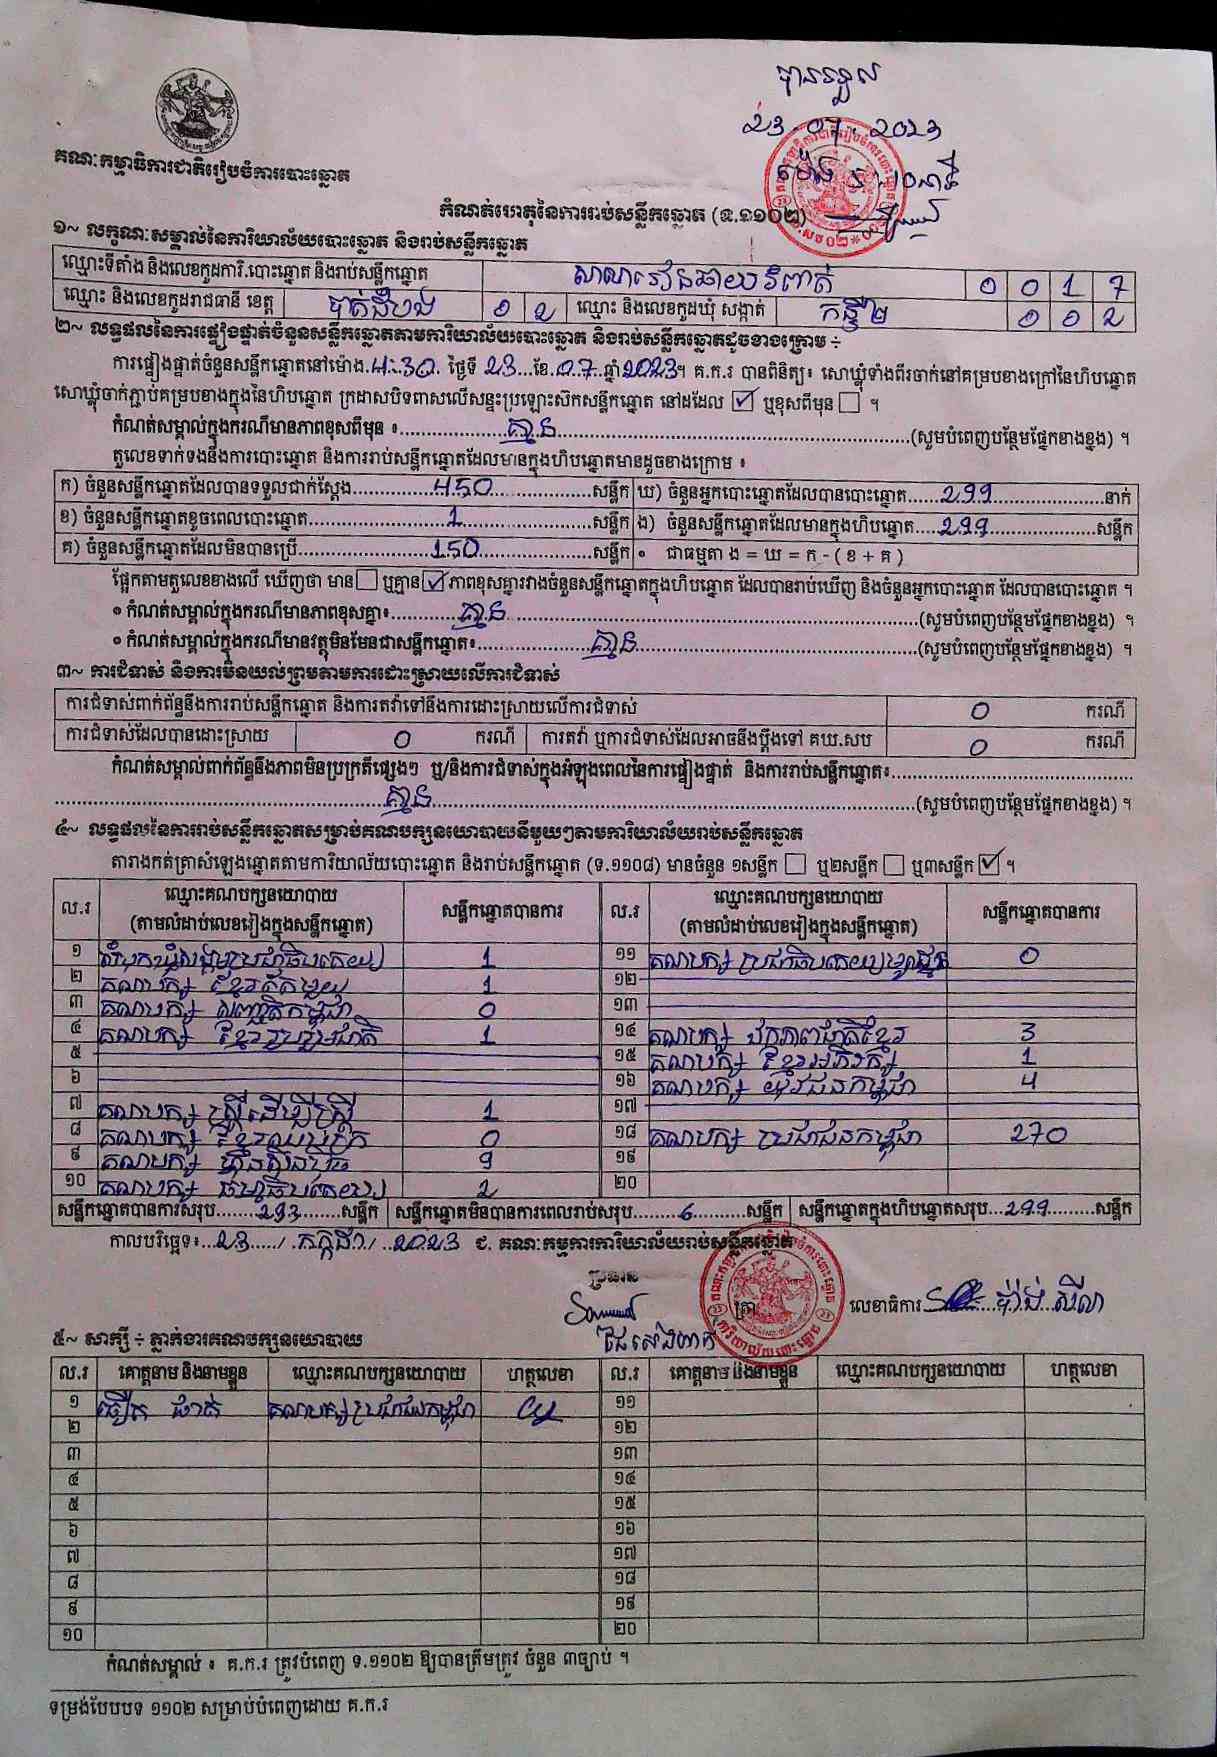 បានទទួល
23.07.2023
គណៈកម្មាធិការជាតិរៀបចំការបោះឆ្នោត
កំណត់ហេតុនៃការរាប់សន្លឹកឆ្នោត (ទ.១១០២)
១~ លក្ខណៈសម្គាល់នៃការិយាល័យបោះឆ្នោត និងរាប់សន្លឹកឆ្នោត
ឈ្មោះទីតាំង និងលេខកូដការិ.បោះឆ្នោត និងរាប់សន្លឹកឆ្នោត 0 0 1 7
ឈ្មោះ និងលេខកូដរាជធានី ខេត្ត បាត់ដំបង 0 2 ឈ្មោះ និងលេខកូដឃុំ សង្កាត់ កន្ទឺ២ 0 0 2
២~ លទ្ធផលនៃការផ្ទៀងផ្ទាត់ចំនួនសន្លឹកឆ្នោតតាមការិយាល័យបោះឆ្នោត និងរាប់សន្លឹកឆ្នោតដូចខាងក្រោម ÷
ការផ្ទៀងផ្ទាត់ចំនួនសន្លឹកឆ្នោតនៅម៉ោង.4:30. ថ្ងៃទី 23...ខែ.07...ឆ្នាំ2023។ គ.ក.រ បានពិនិត្យ៖ សោឃ្លុំទាំងពីរចាក់នៅគម្របខាងក្រៅនៃហិបឆ្នោត
សោឃ្លុំចាក់ភ្ជាប់គម្របខាងក្នុងនៃហិបឆ្នោត ក្រដាសបិទពាសលើសន្ទះប្រឡោះស៊កសន្លឹកឆ្នោត នៅដដែល ☑ ឬខុសពីមុន ☐ ។
កំណត់សម្គាល់ក្នុងករណីមានភាពខុសពីមុន ៖.....គ្មាន.....(សូមបំពេញបន្ថែមផ្នែកខាងខ្នង) ។
តួលេខទាក់ទងនឹងការបោះឆ្នោត និងការរាប់សន្លឹកឆ្នោតដែលមានក្នុងហិបឆ្នោតមានដូចខាងក្រោម ៖
ក) ចំនួនសន្លឹកឆ្នោតដែលបានទទួលជាក់ស្តែង.....450.....សន្លឹក ឃ) ចំនួនអ្នកបោះឆ្នោតដែលបានបោះឆ្នោត.....299.....នាក់
ខ) ចំនួនសន្លឹកឆ្នោតខូចពេលបោះឆ្នោត.....1.....សន្លឹក ង) ចំនួនសន្លឹកឆ្នោតដែលមានក្នុងហិបឆ្នោត.....299.....សន្លឹក
គ) ចំនួនសន្លឹកឆ្នោតដែលមិនបានប្រើ.....150.....សន្លឹក ៖ ជាធម្មតា ង = ឃ = ក - ( ខ + គ )
ផ្អែកតាមតួលេខខាងលើ ឃើញថា មាន ☐ ឬគ្មាន ☑ ភាពខុសគ្នារវាងចំនួនសន្លឹកឆ្នោតក្នុងហិបឆ្នោត ដែលបានរាប់ឃើញ និងចំនួនអ្នកបោះឆ្នោត ដែលបានបោះឆ្នោត ។
• កំណត់សម្គាល់ក្នុងករណីមានភាពខុសគ្នា៖.....គ្មាន.....(សូមបំពេញបន្ថែមផ្នែកខាងខ្នង) ។
• កំណត់សម្គាល់ក្នុងករណីមានវត្ថុមិនមែនជាសន្លឹកឆ្នោត៖.....គ្មាន.....(សូមបំពេញបន្ថែមផ្នែកខាងខ្នង) ។
៣~ ការជំទាស់ និងការមិនយល់ព្រមតាមការដោះស្រាយលើការជំទាស់
ការជំទាស់ពាក់ព័ន្ធនឹងការរាប់សន្លឹកឆ្នោត និងការតវ៉ាទៅនឹងការដោះស្រាយលើការជំទាស់ 0 ករណី
ការជំទាស់ដែលបានដោះស្រាយ 0 ករណី ការតវ៉ា ឬការជំទាស់ដែលអាចនឹងប្តឹងទៅ គឃ.សប 0 ករណី
កំណត់សម្គាល់ពាក់ព័ន្ធនឹងភាពមិនប្រក្រតីផ្សេងៗ ឬ/និងការជំទាស់ក្នុងអំឡុងពេលនៃការផ្ទៀងផ្ទាត់ និងការរាប់សន្លឹកឆ្នោត៖.....
.....គ្មាន.....(សូមបំពេញបន្ថែមផ្នែកខាងខ្នង) ។
៤~ លទ្ធផលនៃការរាប់សន្លឹកឆ្នោតសម្រាប់គណបក្សនយោបាយនីមួយៗតាមការិយាល័យរាប់សន្លឹកឆ្នោត
តារាងកត់ត្រាសំឡេងឆ្នោតតាមការិយាល័យបោះឆ្នោត និងរាប់សន្លឹកឆ្នោត (ទ.១១០៨) មានចំនួន ១សន្លឹក ☐ ឬ២សន្លឹក ☐ ឬ៣សន្លឹក ☑ ។
ល.រ ឈ្មោះគណបក្សនយោបាយ (តាមលំដាប់លេខរៀងក្នុងសន្លឹកឆ្នោត) សន្លឹកឆ្នោតបានការ ល.រ ឈ្មោះគណបក្សនយោបាយ (តាមលំដាប់លេខរៀងក្នុងសន្លឹកឆ្នោត) សន្លឹកឆ្នោតបានការ
១ សំបុកឃ្មុំសង្គមប្រជាធិបតេយ្យ 1 ១១ គណបក្ស ប្រជាធិបតេយ្យមូលដ្ឋាន 0
២ គណបក្ស ខ្មែរតែមួយ 1 ១២
៣ គណបក្ស សញ្ជាតិកម្ពុជា 0 ១៣
៤ គណបក្ស ខ្មែររួបរួមជាតិ 1 ១៤ គណបក្ស ឯកភាពជាតិខ្មែរ 3
៥ ១៥ គណបក្ស ខ្មែរអភិរក្ស 1
៦ ១៦ គណបក្ស យុវជនកម្ពុជា 4
៧ គណបក្ស ស្ត្រីដើម្បីស្ត្រី 1 ១៧
៨ គណបក្ស ខ្មែរឈប់ក្រ 0 ១៨ គណបក្ស ប្រជាជនកម្ពុជា 270
៩ គណបក្ស ហ៊្វុនស៊ិនប៉ិច 9 ១៩
១០ គណបក្ស ធម្មាធិបតេយ្យ 2 ២០
សន្លឹកឆ្នោតបានការសរុប.....293.....សន្លឹក សន្លឹកឆ្នោតមិនបានការពេលរាប់សរុប.....6.....សន្លឹក សន្លឹកឆ្នោតក្នុងហិបឆ្នោតសរុប...299.....សន្លឹក
កាលបរិច្ឆេទ៖...23..../..កក្កដា./..2023 ជ. គណៈកម្មការការិយាល័យរាប់សន្លឹកឆ្នោត
ប្រធាន ត្រា លេខាធិការ
៥~ សាក្សី ÷ ភ្នាក់ងារគណបក្សនយោបាយ
ល.រ គោត្តនាម និងនាមខ្លួន ឈ្មោះគណបក្សនយោបាយ ហត្ថលេខា ល.រ គោត្តនាម និងនាមខ្លួន ឈ្មោះគណបក្សនយោបាយ ហត្ថលេខា
១ គណបក្សប្រជាជនកម្ពុជា ១១
២ ១២
៣ ១៣
៤ ១៤
៥ ១៥
៦ ១៦
៧ ១៧
៨ ១៨
៩ ១៩
១០ ២០
កំណត់សម្គាល់ ៖ គ.ក.រ ត្រូវបំពេញ ទ.១១០២ ឱ្យបានត្រឹមត្រូវ ចំនួន ៣ច្បាប់ ។
ទម្រង់បែបបទ ១១០២ សម្រាប់បំពេញដោយ គ.ក.រ